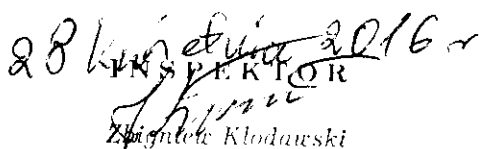 28 kwietnia 2016 r
INSPEKTOR
Zbigniew Kłodawski